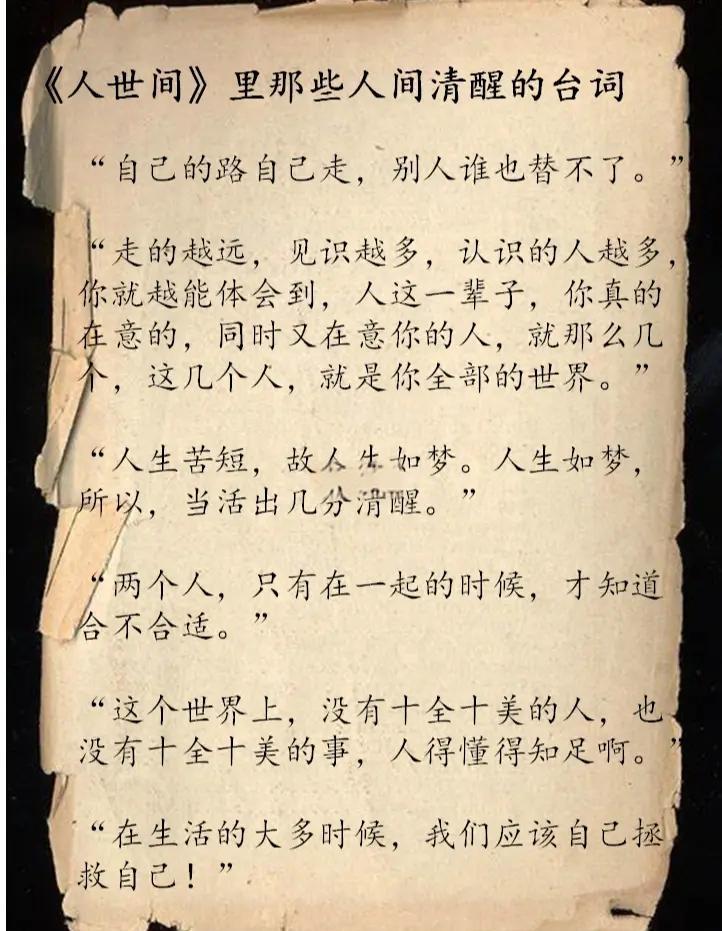 《人世间》里那些人间清醒的台词
“自己的路自己走，别人谁也替不了。”
“走的越远，见识越多，认识的人越多，
你就越能体会到，人这一辈子，你真的
在意的，同时又在意你的人，就那么几
个，这几个人，就是你全部的世界。”
“人生苦短，故人生如梦。人生如梦，
所以，当活出几分清醒。”
“两个人，只有在一起的时候，才知道
合不合适。”
“这个世界上，没有十全十美的人，也
没有十全十美的事，人得懂得知足啊。”
“在生活的大多时候，我们应该自己拯
救自己！”